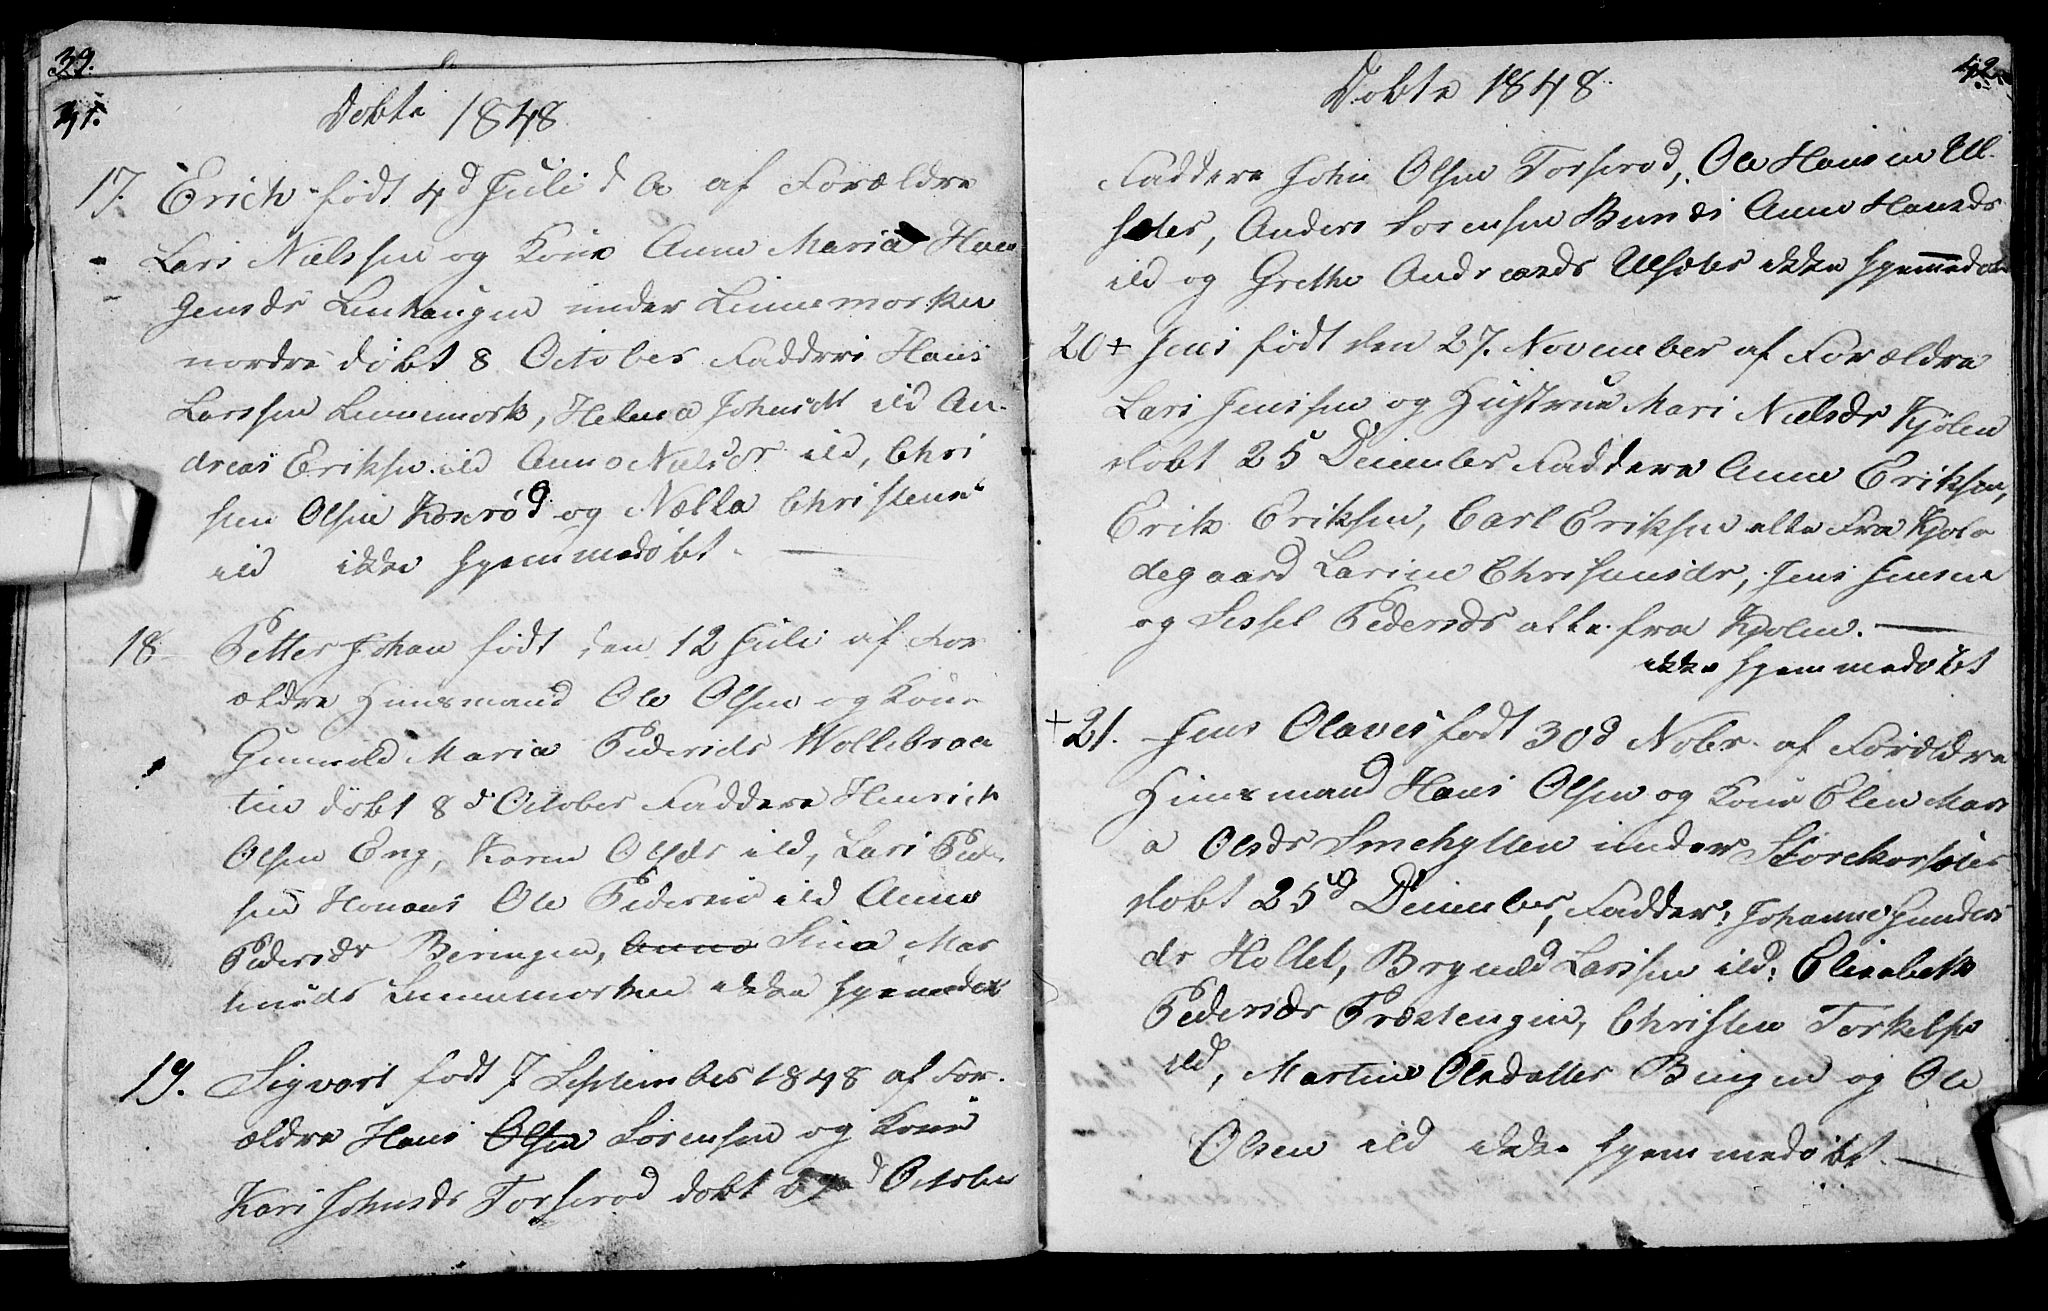 39.
41.
Døbte 1848
17. Erich født 4d Juli d A af Forældre
Lars Nielssen og Kone Anne Maria Han
Jensdr Linhaugen under Linnemorken
nordre døbt 8 October Faddere Hans
Larssen Linnemork, Helena Johnsdr ild An-
dreas Eriksen ild Anne Nielsdr ild, Chri
sten Olsen Korsrød og Nella Christens
ild ikke hjemmedøbt.
18 Petter Johan født den 12 Juli af For
ældre Huusmand Ole Olsen og Kone
Gunnild Maria Pedersdr Wollebraa
ten døbt 8d October Faddere Henrich
Olsen Eng, Karen Olsdr ild, Lars Peder
sen Honans Ole Pedersen ild Anne
Pedersdr Beringen, Anne Sina Mar
kusdr Linnemorken ikke hjemmedøbt
19. Sigvart født 7 September 1848 af For-
ældre Hans Olsen Sorensen og Kone
Kari Johnsdr Torserød døbt d October
42
Døbte 1848.
Faddere John Olsen Torserød, Ole Hansen Ul-
sæter, Anders Sorensen Bundi Anne Hansdr
ild og Grethe Andreasdr Ulsæter ikke hjemmedøbt
20 + Jens født den 27. November af Forældre
Lars Jenssen og Hustrue Mari Nielsdr Kjølen
døbt 25 December Faddere Anne Eriksen,
Erik Eriksen, Carl Eriksen alle fra Kjølo
degaard Larine Christensdr, Jens Jensen
og Sissel Pedersdr alle fra Kjølen.
ikke hjemmedøbt
+ 21. Jens Olaves født 30d Nobr. af Forældre
Huusmand Hans Olsen og Kone Elen Mari
a Olsdr Smehytten under Storekorsæter
døbt 25d December, Fadder: Johanne Gunders
dr Holtet, Brynild Larssen ild: Elisabeth
Pedersdr Præstengen, Christen Torkelsen
ild, Martine Olsdatter Bingen og Ole
Olsen ild ikke hjemmedøbt.